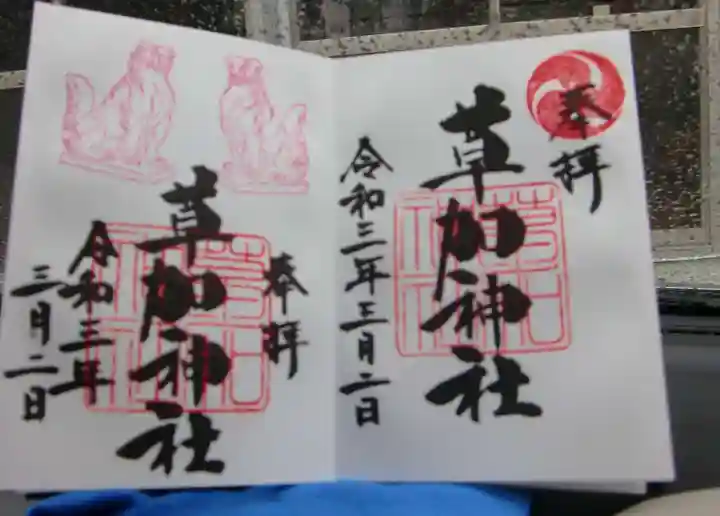 奉拝
草加神社
令和三年三月二日
奉拝
草加神社
令和三年
三月二日